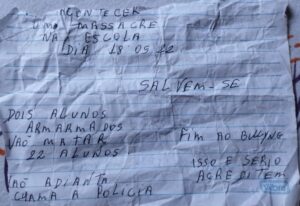 ACONTECER
UMO MASSACRE
NA ESCOLA
DIA 18 05 22
SALVEM-SE
DOIS ALUNOS
ARMARMADOS
VÃO MATAR
22 ALUNOS
NÃO ADIANTA
CHAMA A POLICIA
FIM AO BULLYNG
ISSO E SERIO
AGREDITEM